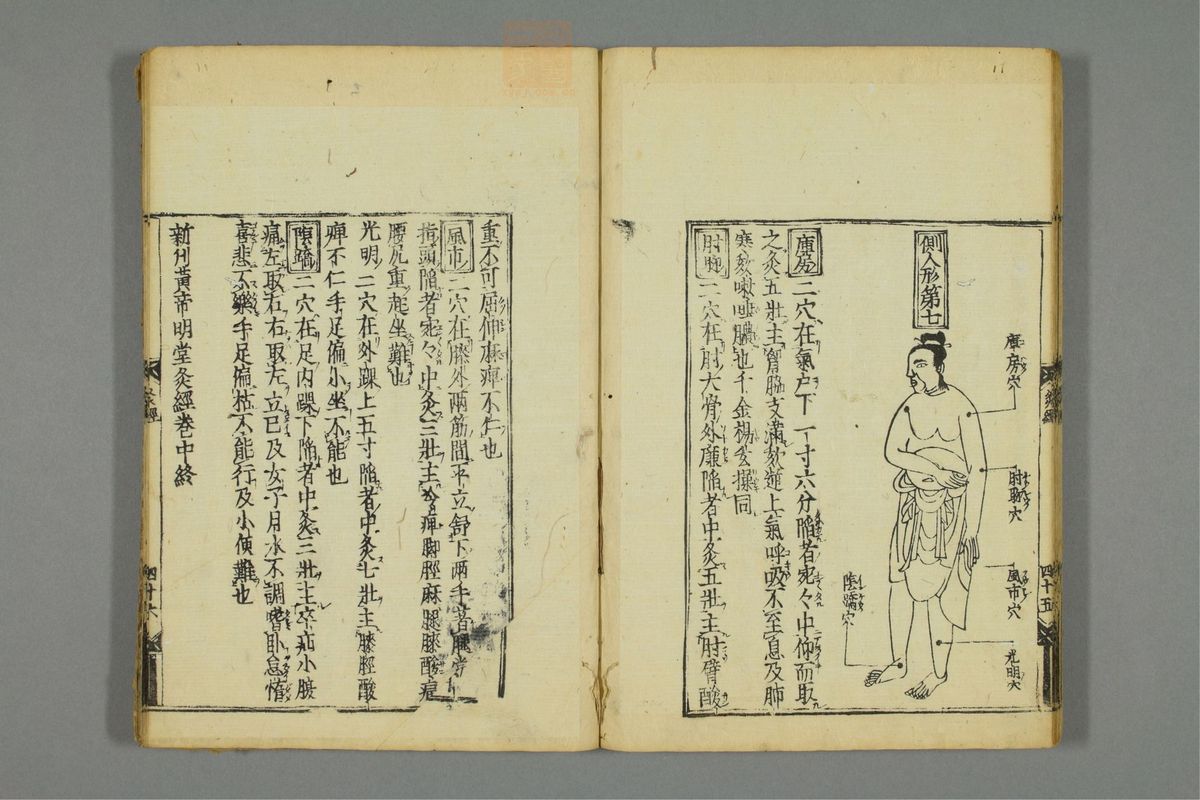 側人形第七
庫房穴
肘聊穴
風市穴
光明穴
陰蹻穴
庫房 二穴在氣户下一寸六分陥者宛々中仰而取
之灸五壮主胷脇支滿欬逆上氣呼吸不至息及肺
寒欬嗽唾膿也千金楊玄操同
肘聊 二穴在肘大骨外廉陥者中灸五壮主肘臂酸
重不可屈伸麻痺不仁也
風市 二穴在膝外兩筋間平立舒下兩手著腿當中
指頭陥者宛々中灸三壮主冷痺脚脛麻腿膝酸痛
腰尻重起坐難也
光明 二穴在外踝上五寸陥者中灸七壮主膝脛酸
痺不仁手足偏小坐不能也
陰蹻 二穴在足内踝下陥者中灸三壮主卒疝小腹
痛左取右右取左立已及女子月水不調嗜卧怠惰
喜悲不樂手足偏枯不能行及小便難也
新刊黄帝明堂灸經巻中終
灸經
四十五
四十六